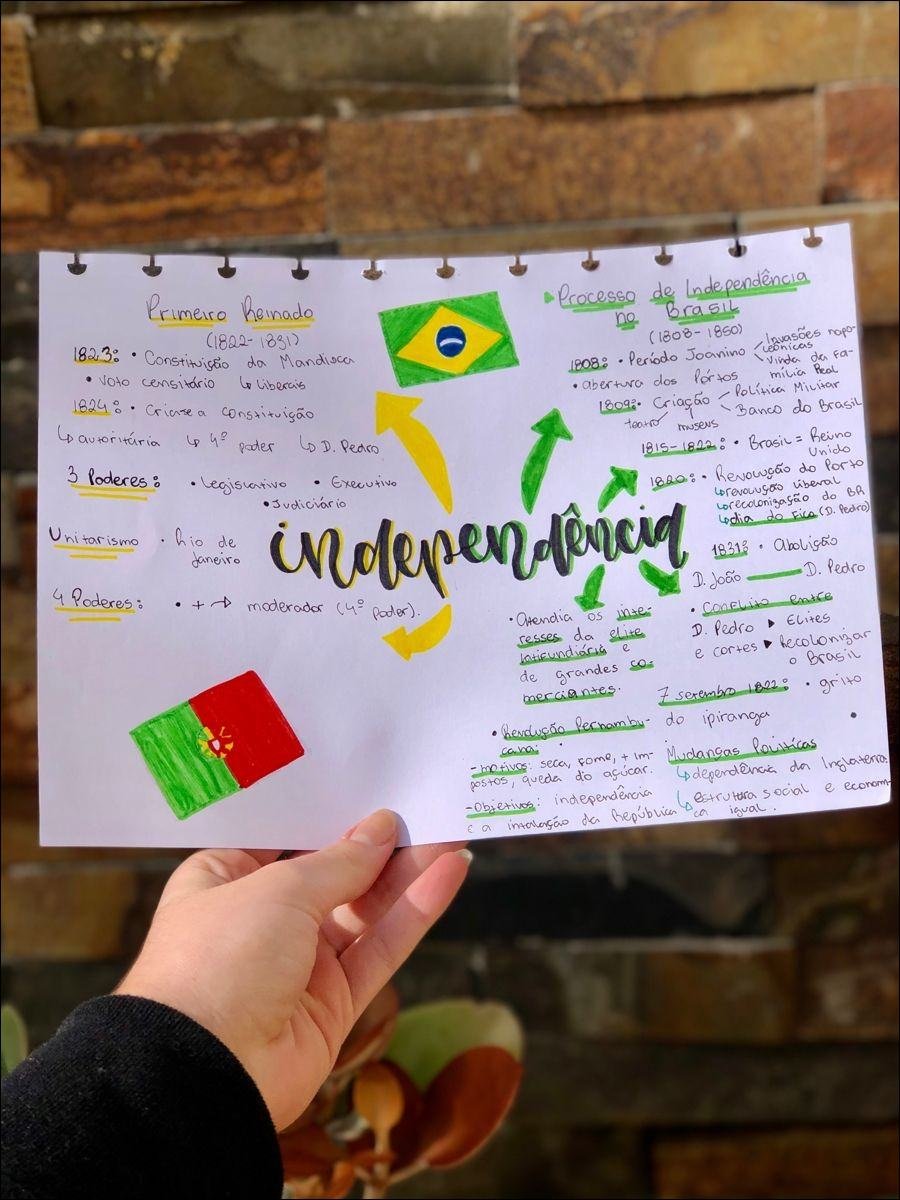 Primeiro Reinado
(1822-1831)
1823: • Constituição da Mandioca
• voto censitário ↳ liberais
1824: • Cria-se a constituição
↳ autoritária ↳ 4º poder ↳ D. Pedro
3 Poderes: • Legislativo • Executivo
• Judiciário
Unitarismo • Rio de
Janeiro
4 Poderes: • + → moderador (4º poder).
independência
▸ Processo de Independência
no Brasil
(1808-1850)
1808: • Período Joanino
Invasões napo-
leônicas
Vinda da Fa-
mília Real
• abertura dos Portos
1809: Criação
Política Militar
Banco do Brasil
teatro museus
1815-1822: • Brasil = Reino
Unido
1820: • Revolução do Porto
↳ revolução liberal
↳ recolonização do BR
↳ dia do Fico (D. Pedro)
1831: • Abolição
D. João — D. Pedro
• Conflito entre
D. Pedro ▸ Elites
e cortes ▸ Recolonizar
o Brasil
7 setembro 1822: • grito
do ipiranga
Mudanças Políticas
↳ dependência da Inglaterra
↳ estrutura social e econômi-
ca igual.
• Atendia os inte-
resses da elite
latifundiária e
de grandes co-
merciantes.
• Revolução Pernambu-
cana:
- motivos: seca, fome, + im-
postos, queda do açúcar.
- Objetivos: independência
e a instalação da República